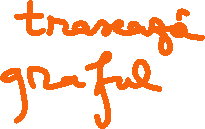 trasează
graful